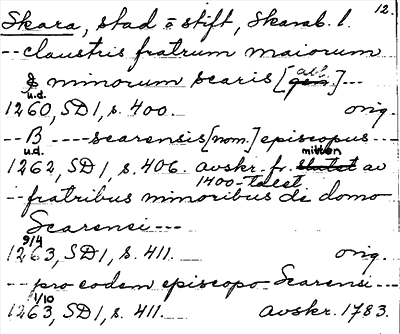 12.
Skara, stad o stift, Skarab. l.
-- claustris fratrum maiorum
& minorum scaris [gen abl.] ---
u.d.
1260, SD1, s. 400. orig.
-- B ---- scarensis [nom.] episcopus ---
u.d.
1262, SD1, s. 406. avskr. fr. slutet mitten av
1400-talet
-- fratribus minoribus de domo
Scarensi ---
9/4
1263, SD1, s. 411. orig.
-- pro eodem episcopo Scarensi ---
1/10
1263, SD1, s. 411. avskr. 1783.